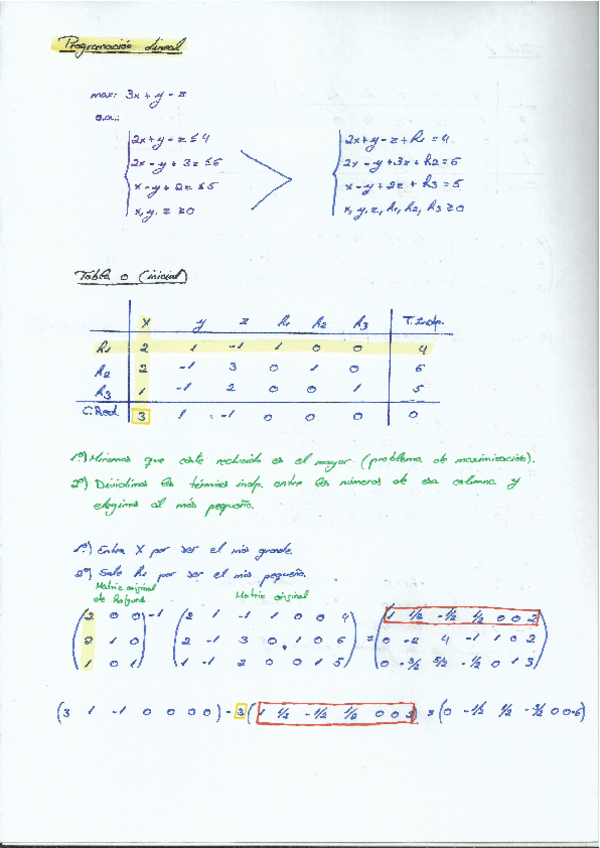 Programación Lineal
max: 3x + y - z
s.a.:
2x + y - z ≤ 4
2x - y + 3z ≤ 6
x - y + 2z ≤ 5
x, y, z ≥ 0
2x + y - z + h1 = 4
2x - y + 3z + h2 = 6
x - y + 2z + h3 = 5
x, y, z, h1, h2, h3 ≥ 0
Tabla 0 (inicial)
X y z h1 h2 h3 T. Indp.
h1 2 1 -1 1 0 0 4
h2 2 -1 3 0 1 0 6
h3 1 -1 2 0 0 1 5
C. Red. 3 1 -1 0 0 0 0
1º) Miramos que coste reducido es el mayor (problema de maximización).
2º) Dividimos los términos indp. entre los números de esa columna y
elegimos al más pequeño.
1º) Entra X por ser el más grande.
2º) Sale h1 por ser el más pequeño.
Matriz original
de Holgura
Matriz original
(2 0 0)-1 (2 1 -1 1 0 0 4) (1 1/2 -1/2 1/2 0 0 2)
(2 1 0) (2 -1 3 0 1 0 6) = (0 -2 4 -1 1 0 2)
(1 0 1) (1 -1 2 0 0 1 5) (0 -3/2 5/2 -1/2 0 1 3)
(3 1 -1 0 0 0 0) - 3 (1 1/2 -1/2 1/2 0 0 2) = (0 -1/2 1/2 -3/2 0 0 -6)